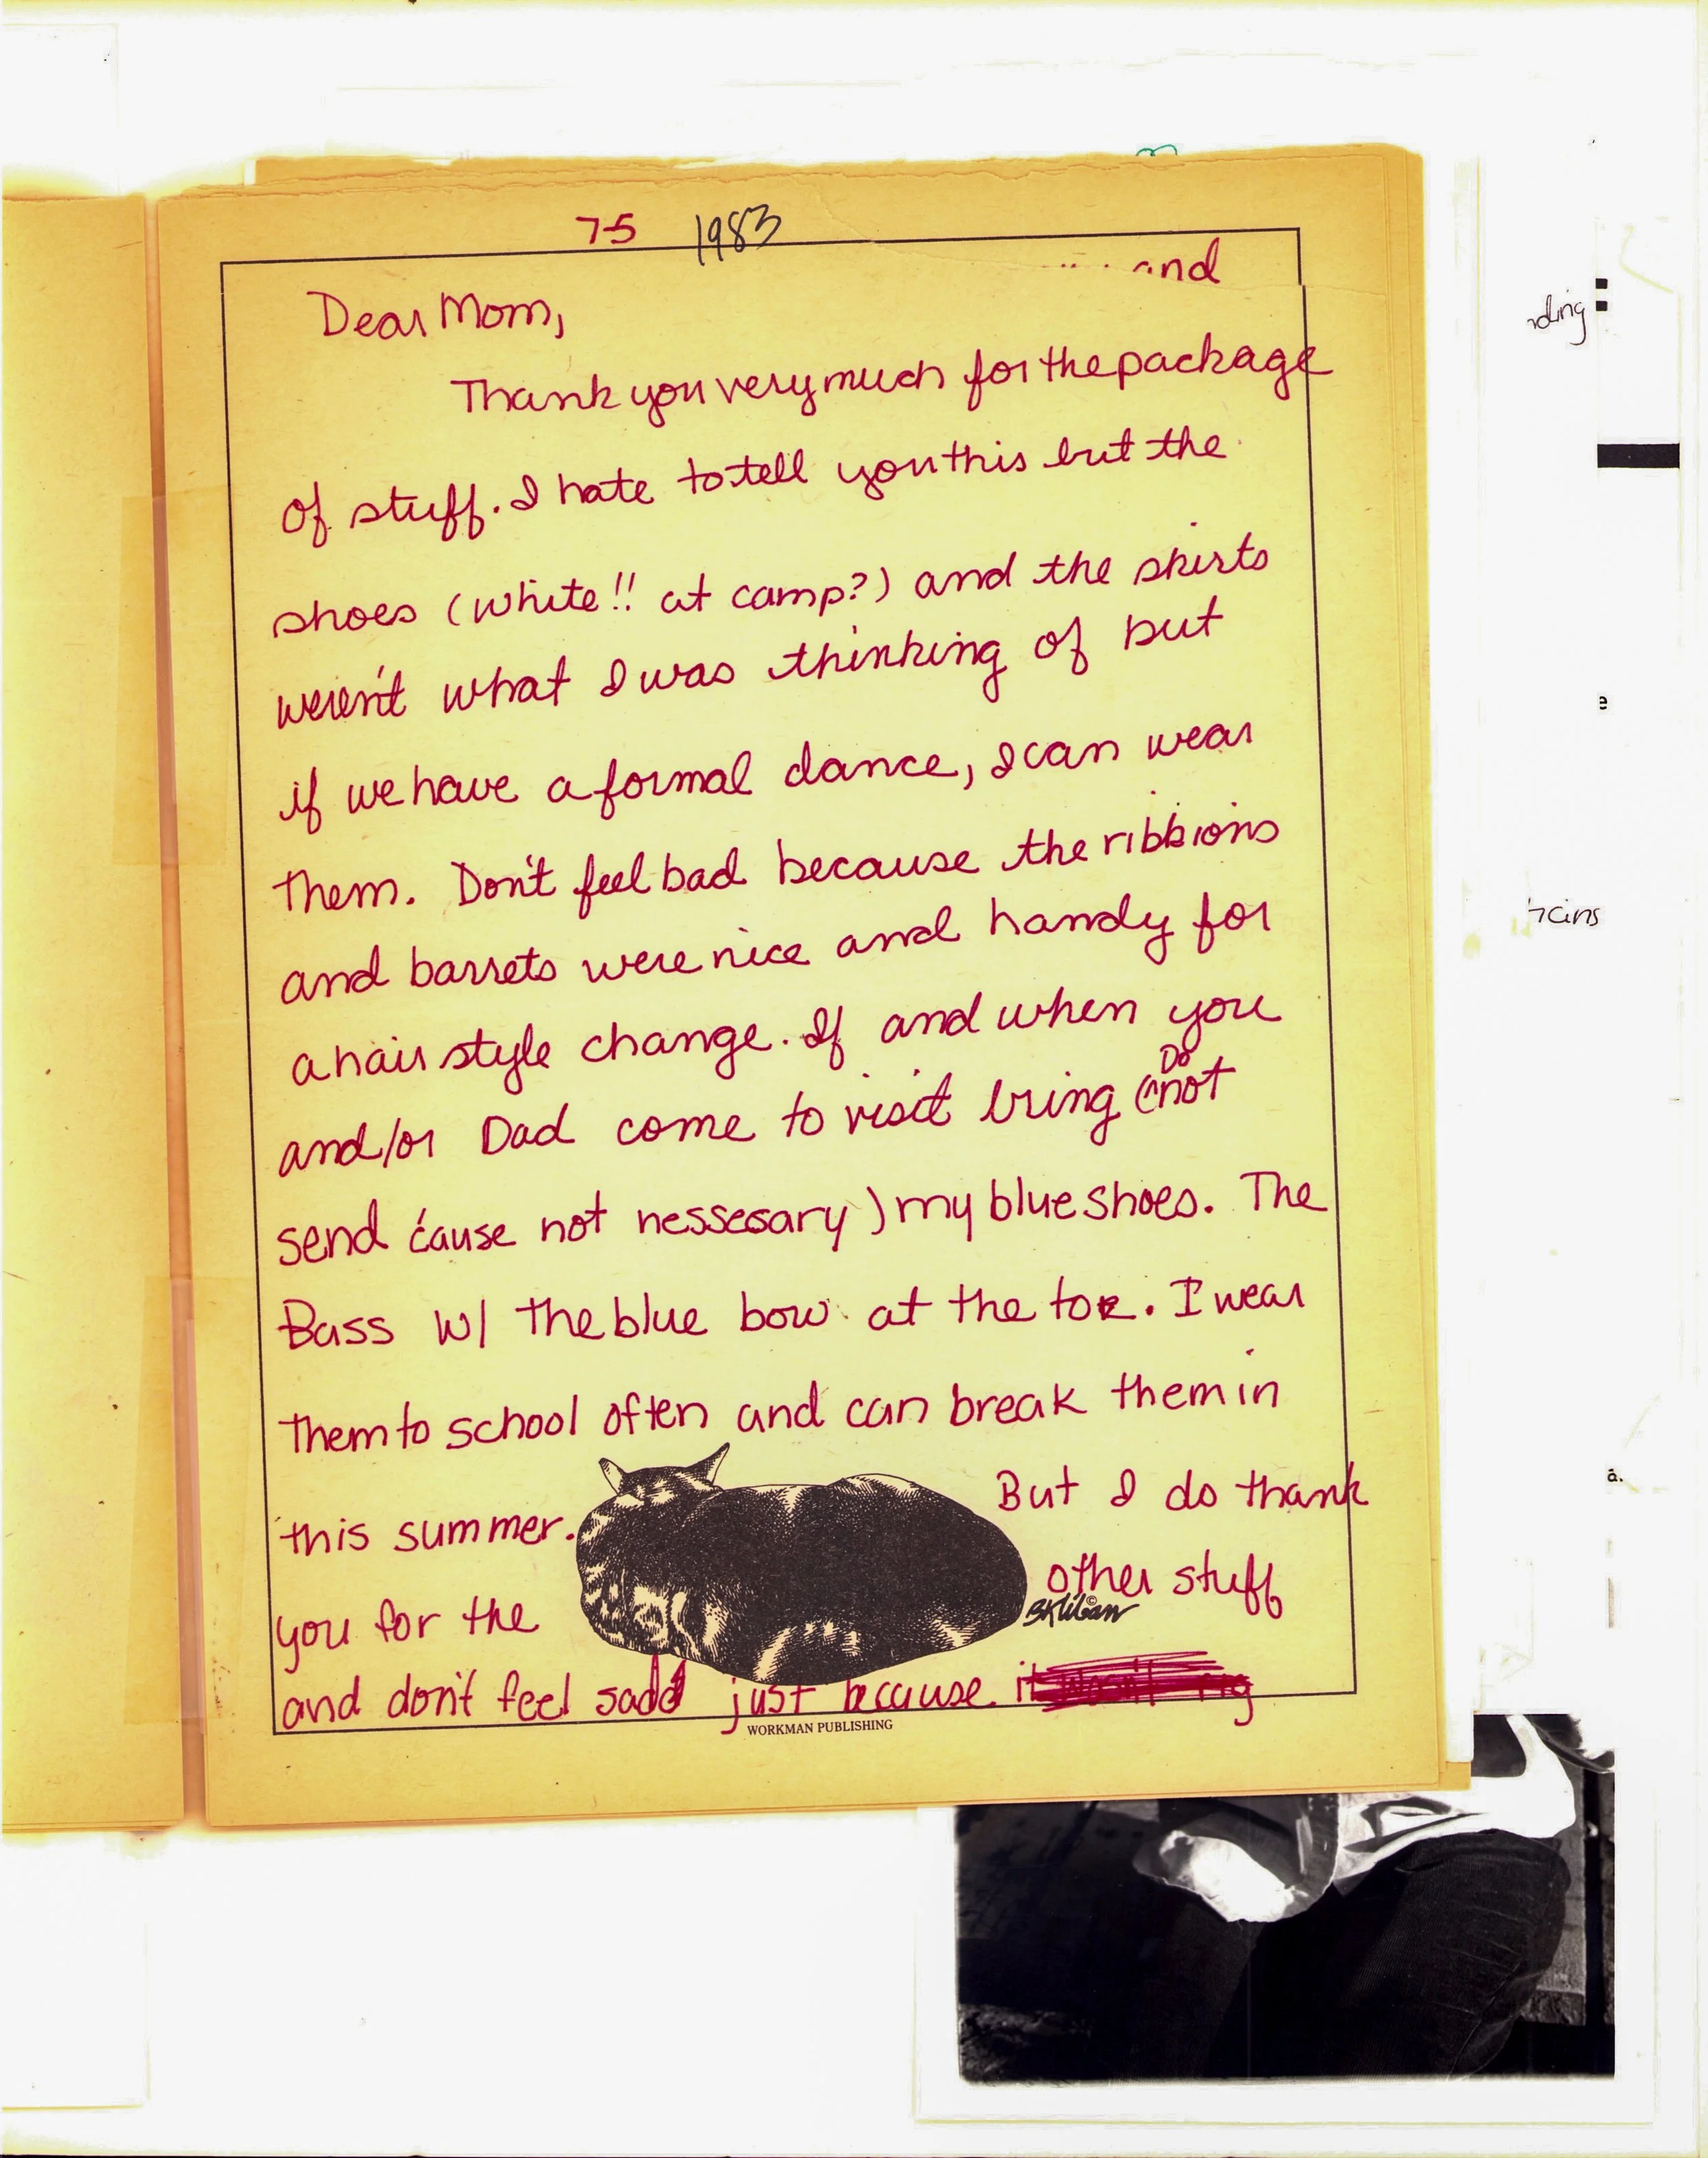 7-5 1983
and
Dear Mom,
Thank you very much for the package
of stuff. I hate to tell you this but the
shoes (white!! at camp?) and the skirts
weren't what I was thinking of but
if we have a formal dance, I can wear
them. Don't feel bad because the ribbions
and barrets were nice and handy for
a hair style change. If and when you
and/or Dad come to visit bring (Do not
send 'cause not nessesary) my blue shoes. The
Bass w/ the blue bow at the toe. I wear
them to school often and can break them in
this summer. But I do thank
you for the other stuff
BKliban
and don't feel sad just because it
WORKMAN PUBLISHING